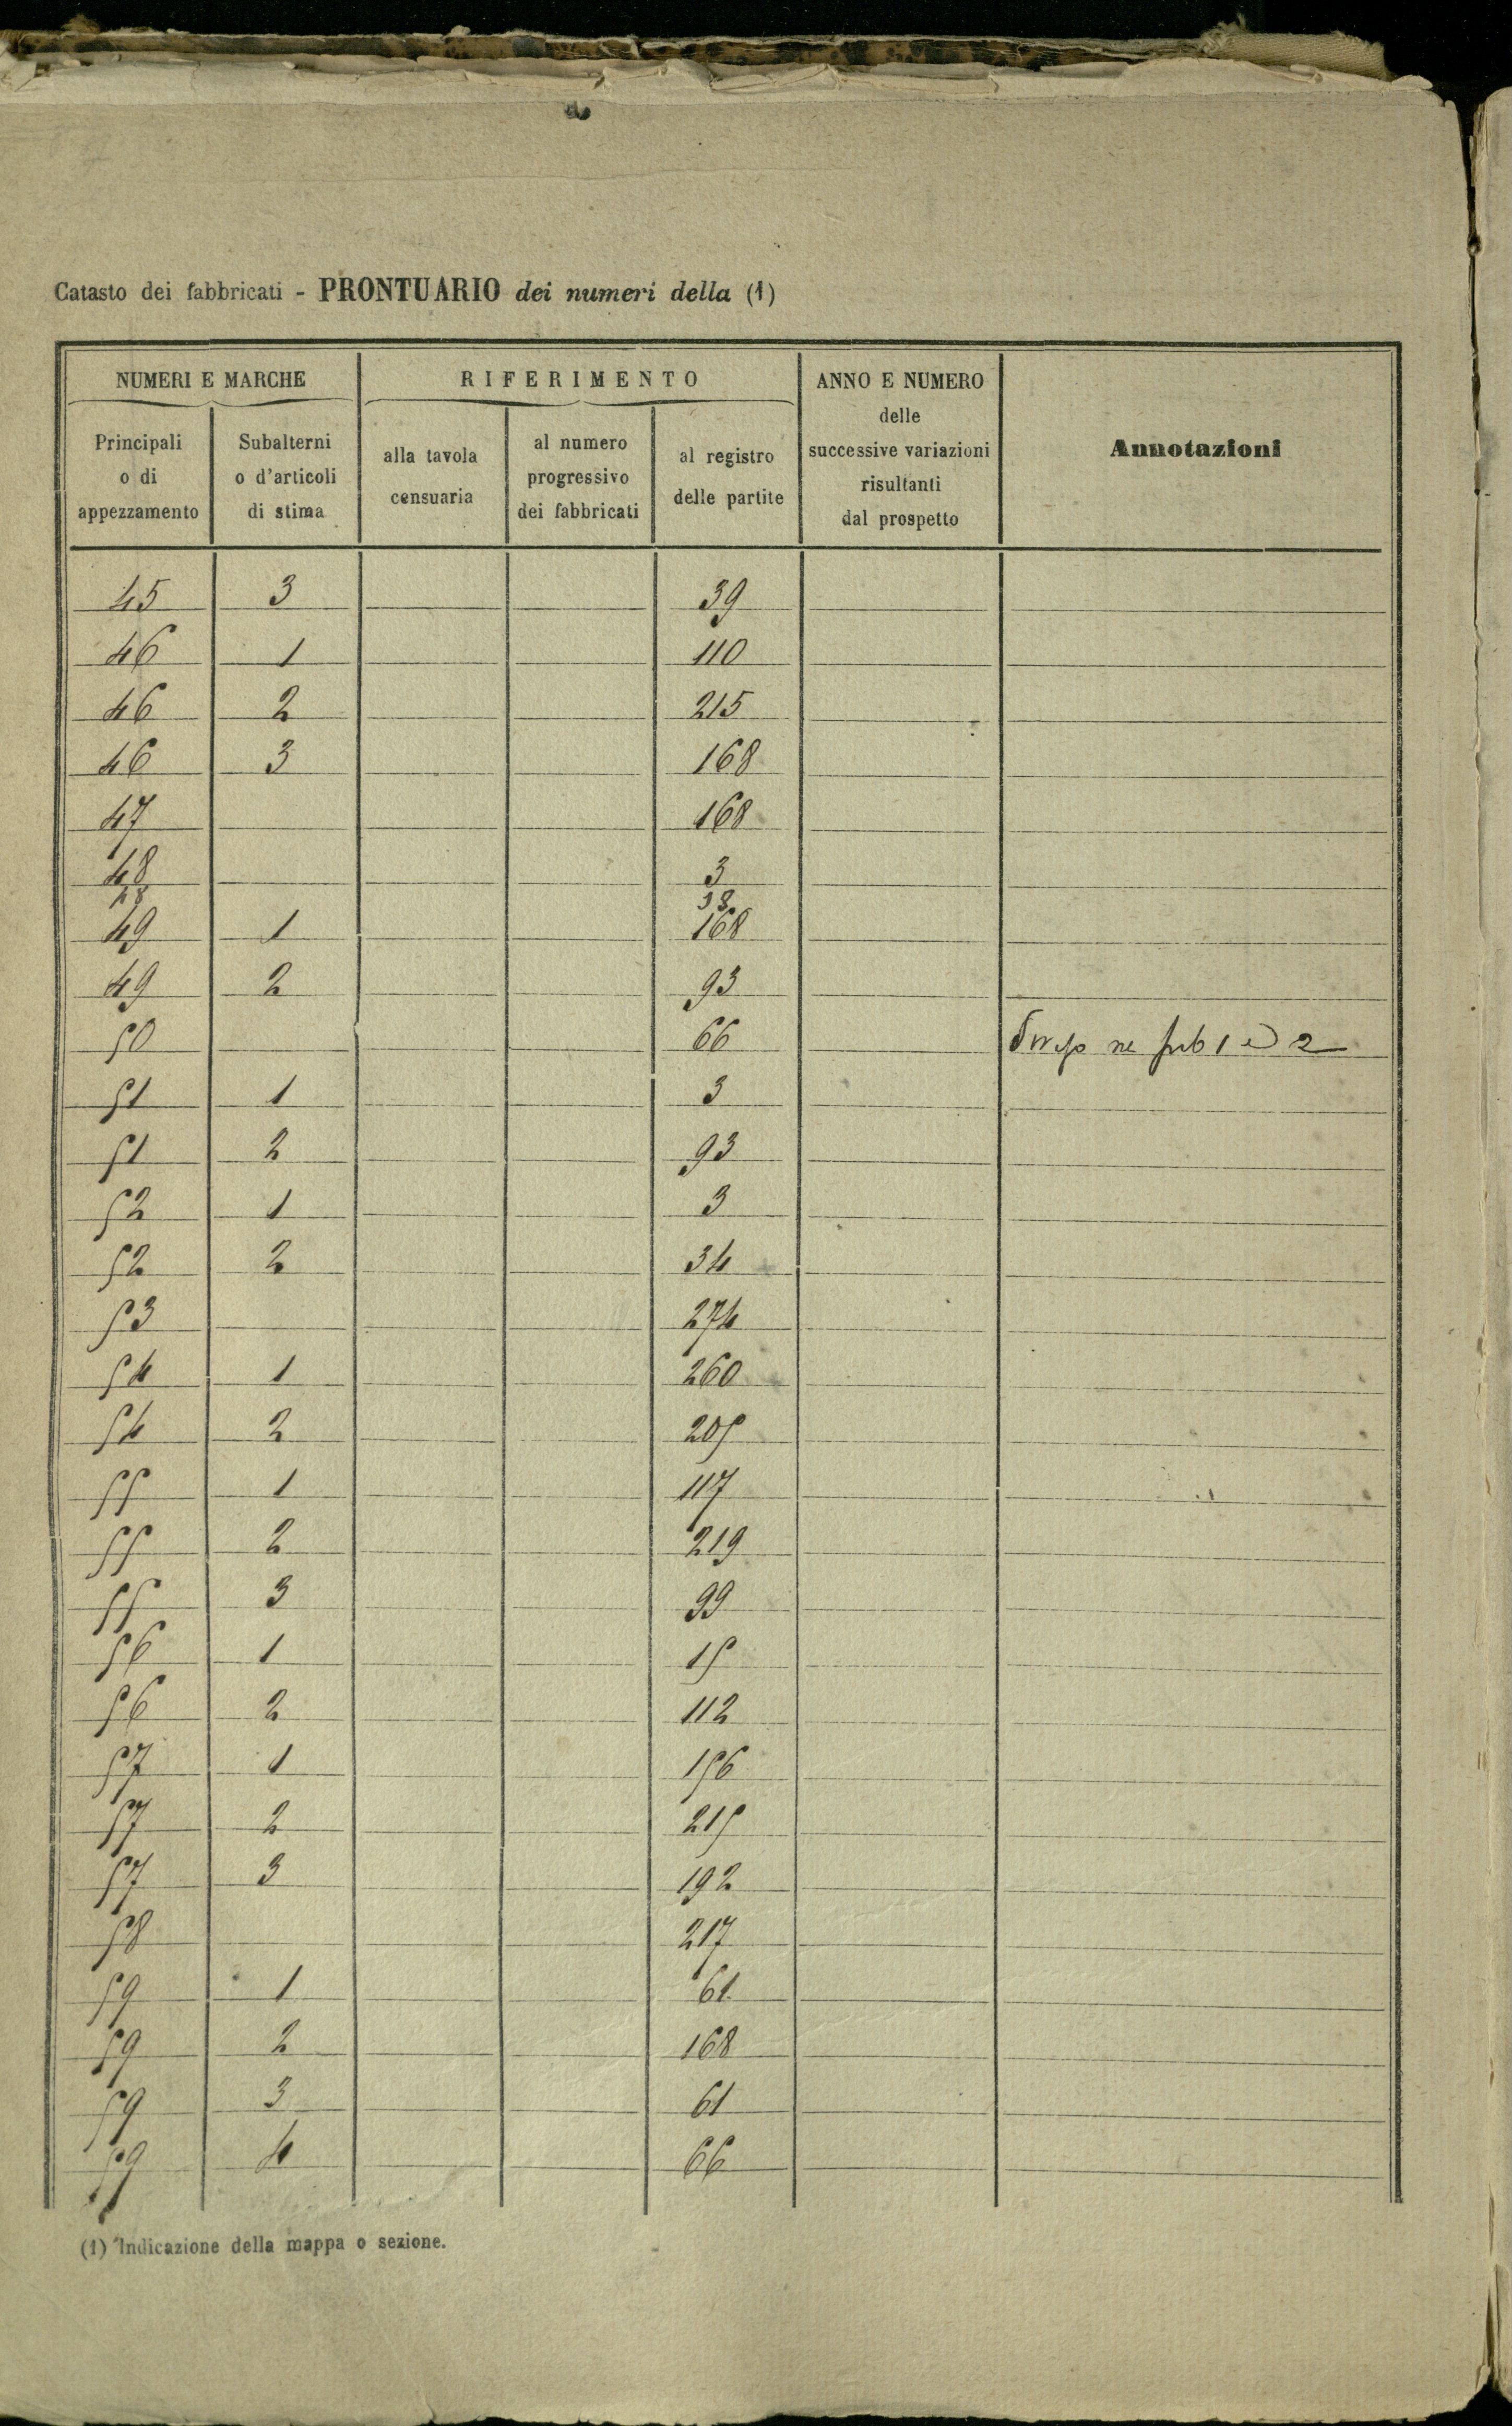 Catasto dei fabbricati - PRONTUARIO dei numeri della (1)
NUMERI E MARCHE
Principali o di appezzamento
Subalterni o d'articoli di stima
RIFERIMENTO
alla tavola censuaria
al numero progressivo dei fabbricati
al registro delle partite
ANNO E NUMERO delle successive variazioni risultanti dal prospetto
Annotazioni
45 3 39
46 1 110
46 2 215
46 3 168
47 168
48 3
48 38
49 1 168
49 2 93
50 66 ne sub 1 e 2
51 1 3
51 2 93
52 1 3
52 2 34
53 274
54 1 260
54 2 205
55 1 117
55 2 219
55 3 99
56 1 15
56 2 112
57 1 156
57 2 215
57 3 192
58 217
59 1 61
59 2 168
59 3 61
59 4 66
(1) Indicazione della mappa o sezione.